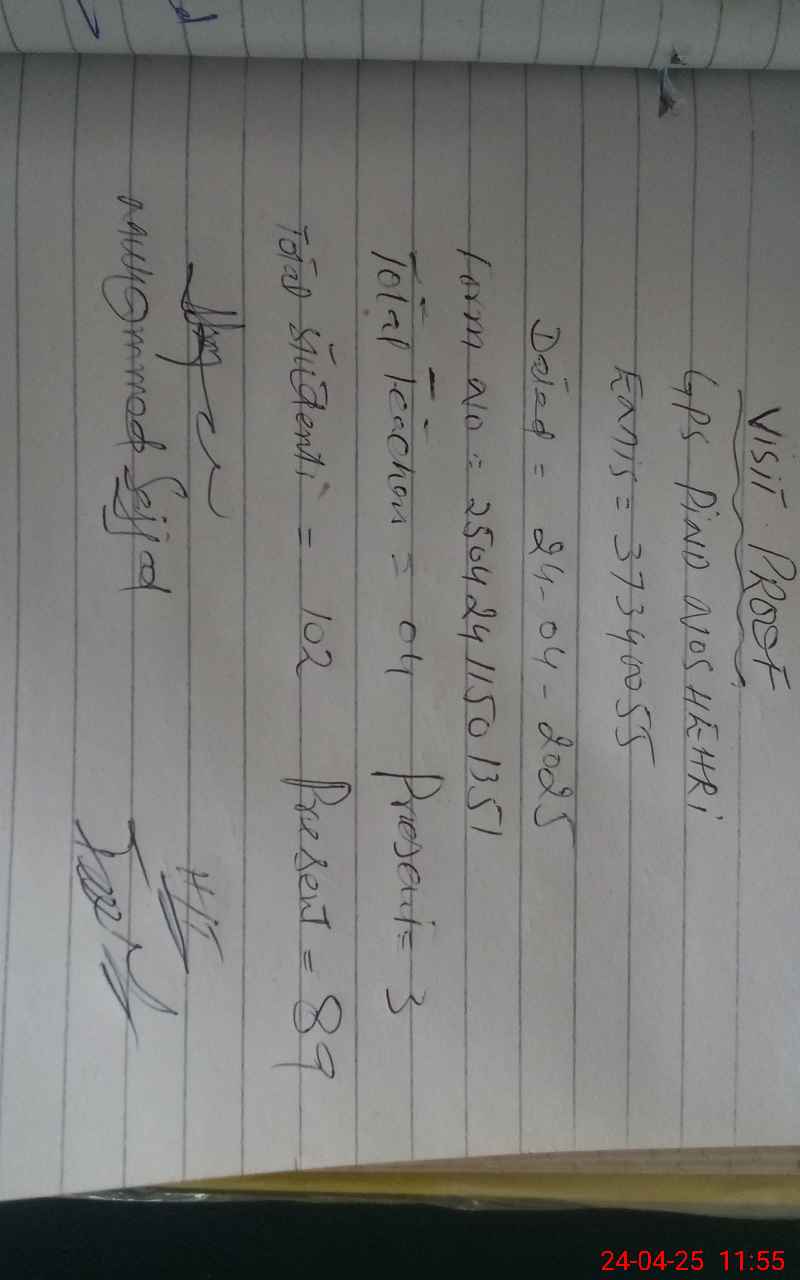 VISIT PROOF
GPS PIND NOSHEHRI
Emis = 37340055
Dated = 24-04-2025
Form No = 25042411501351
Total Teachon = 04 Present = 3
Total Students = 102 Present = 89
H/T
Muhammad Sajjad
24-04-25 11:55